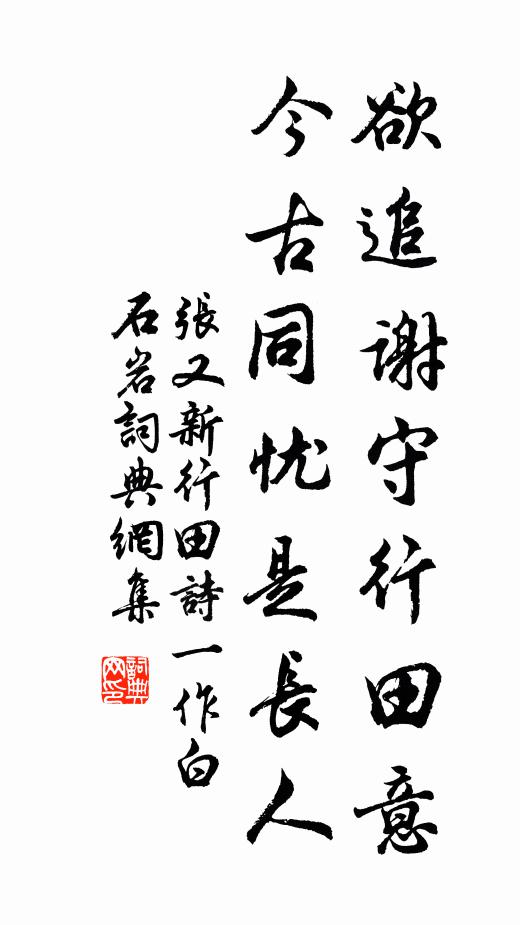 欲追謝守行田意
今古同忧是長人
張又新行田詩一作白
石岩詞典網集
詞典网印